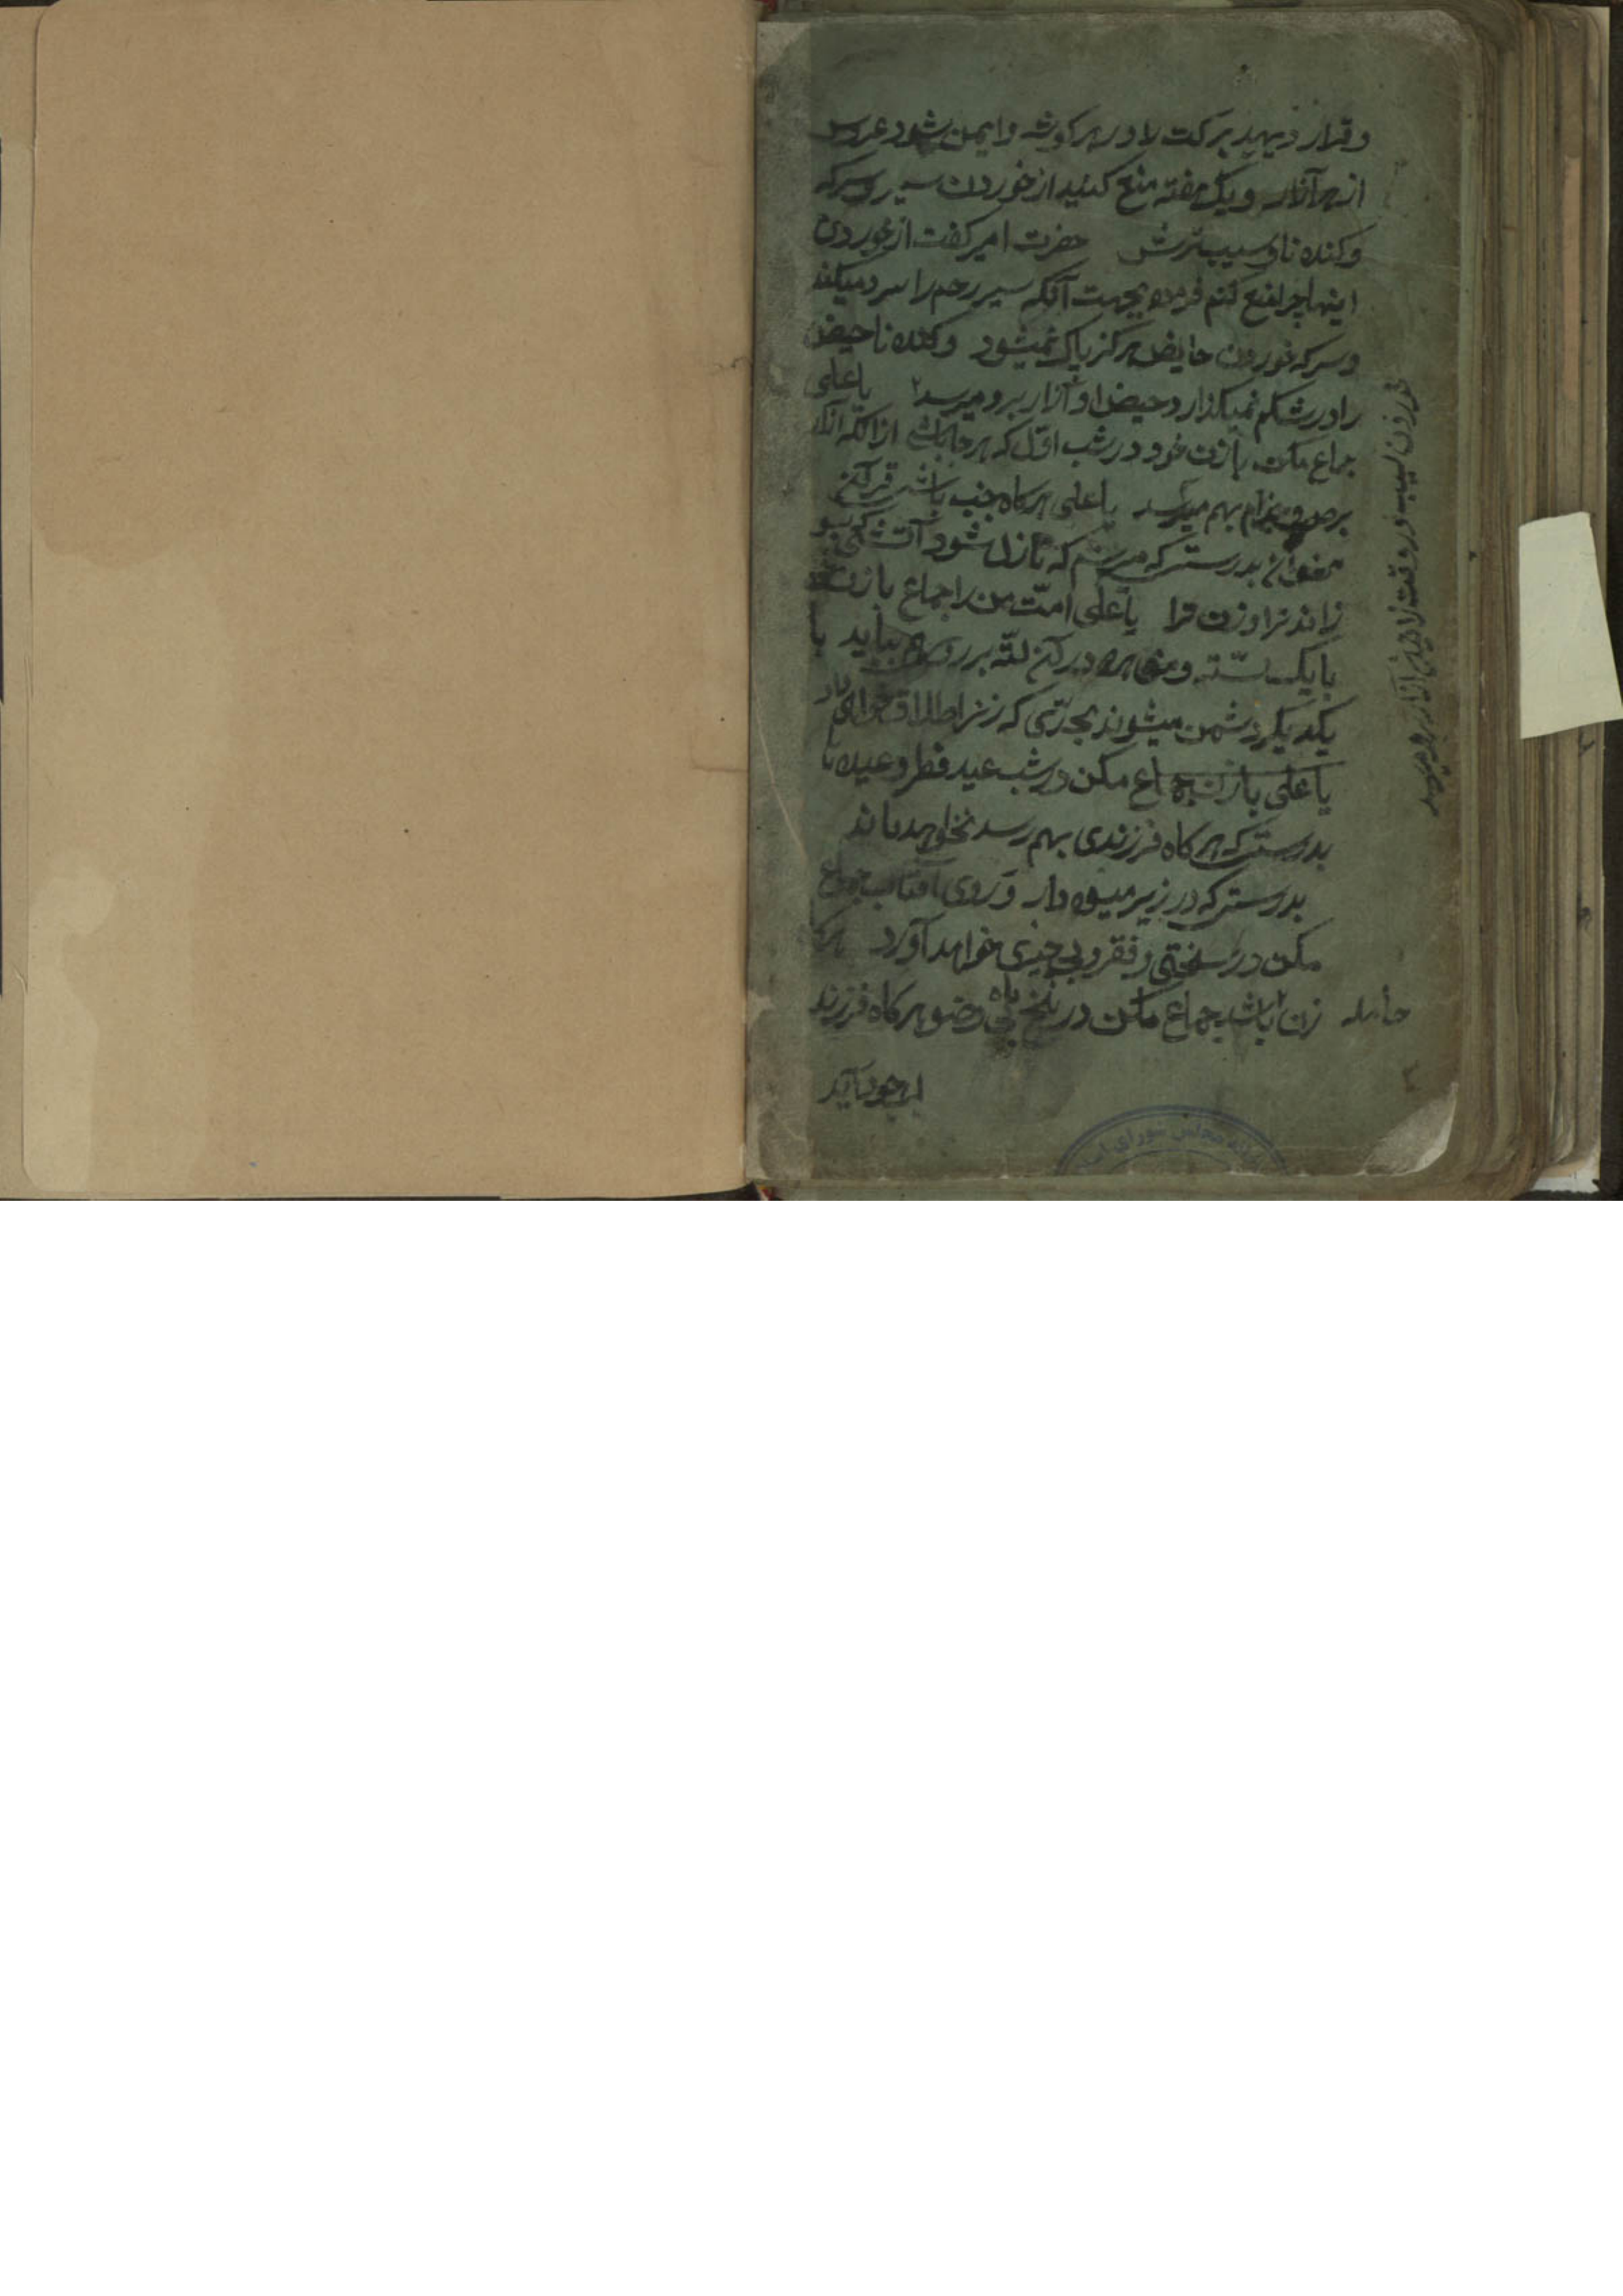 و قرار دهید برکت را در هر کوشه و ایمن شود عروس
از هر آزار و یک هفته منع کنید از خوردن سیر و سرکه
و کنده نا و سیب ترش حضرت امیر کفت از خوردن
اینها چرا منع کنم فرمود بجهت آنکه سیر رحم را سرد میکند
و سرکه خوردن حایض هرکز پاک نمیشود و کنده نا حیض
را در شکم نمیکذارد حیض او آزار برو میرسد یا علی
جماع مکن با زن خود در شب اول که هر جا باشی از آنکه آزار
برص و جذام بهم میرسد یا علی هرکاه جنب باشی قرآن
مخوان بدرستیکه میرسم که نازل شود آتشی
زاند ترا و زن ترا یا علی امت من را جماع با زن
با یک لته و در آن لته بر روی هم یا
یکدیکر دشمن میشوند بحدی که زنرا طلاق خواهی داد
یا علی با زن جماع مکن در شب عید فطر و عید
بدرستیکه هرکاه فرزندی بهم رسد نخواهد ماند
بدرستیکه در زیر میوه دار و روی آفتاب جماع
مکن در سختی و فقر و بی چیزی خواهد آورد هرکه
حامله زن باشد جماع مکن در بی وضو هرکاه فرزند
بوجود آید
خوردن سیب در وقت آزار میرسد
۲
مجلس شورای